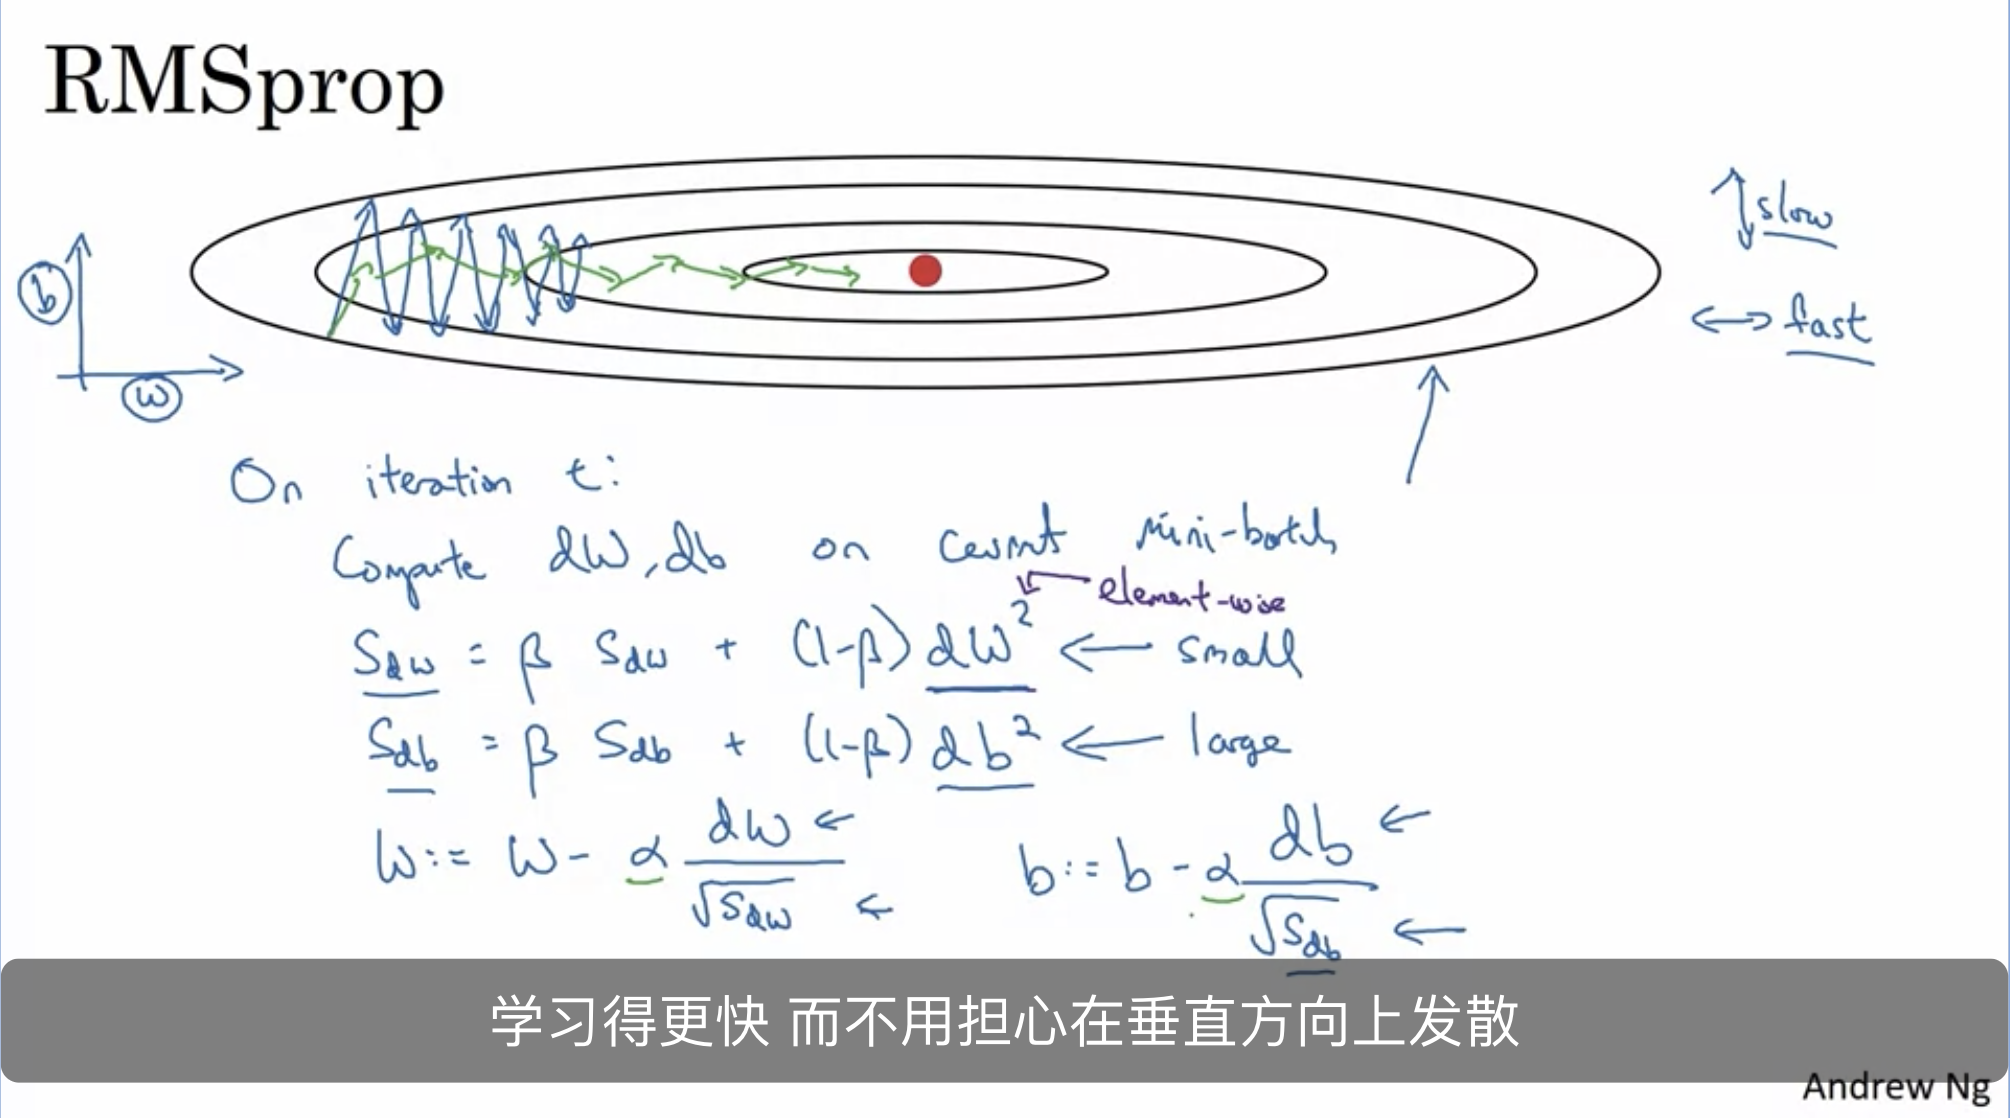 RMSprop
slow
b
fast
w
On iteration t:
Compute dW, db on current mini-batch
element-wise
Sdw = β Sdw + (1-β) dW² ← small
Sdb = β Sdb + (1-β) db² ← large
W := W - α dW/√Sdw ← b := b - α db/√Sdb ←
学习得更快 而不用担心在垂直方向上发散
Andrew Ng